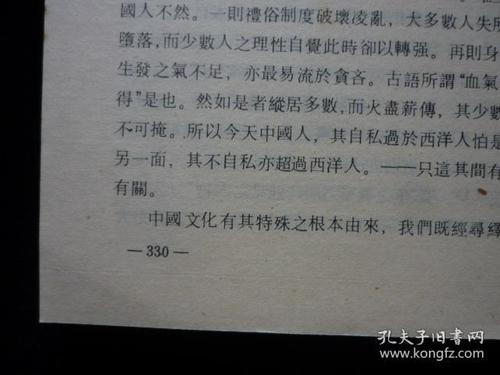 國人不然。一則禮俗制度破壞凌亂，大多數人失所
墮落，而少數人之理性自覺此時卻以轉强。再則身
生發之氣不足，亦最易流於貪吝。古語所謂“血氣
得”是也。然如是者縱居多數，而火盡薪傳，其少數
不可掩。所以今天中國人，其自私過於西洋人怕是
另一面，其不自私亦超過西洋人。——只這其間有
有關。
中國文化有其特殊之根本由來，我們既經尋繹
—330—
孔夫子旧書网
www.kongfz.com